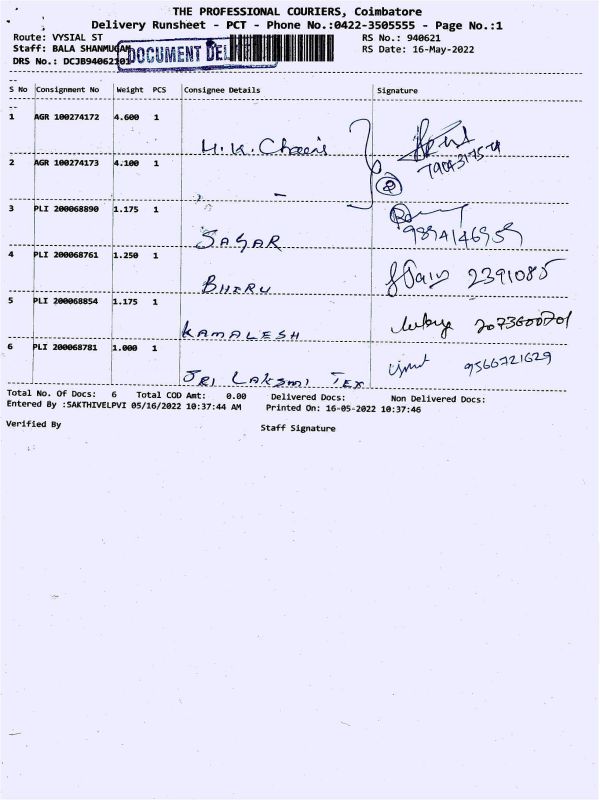 THE PROFESSIONAL COURIERS, Coimbatore
Delivery Runsheet - PCT - Phone No.:0422-3505555 - Page No.:1
Route: VYSIAL ST RS No.: 940621
Staff: BALA SHANMUGAM RS Date: 16-May-2022
DOCUMENT DEL
DRS No.: DCJB94062101
S No Consignment No Weight PCS Consignee Details Signature
1 AGR 100274172 4.600 1
H.K.
2 AGR 100274173 4.100 1
3 PLI 200068890 1.175 1
SAGAR
4 PLI 200068761 1.250 1
BHERU 2391085
5 PLI 200068854 1.175 1
KAMALESH
6 PLI 200068781 1.000 1
9566721629
SRI LAKSMI TEX
Total No. Of Docs: 6 Total COD Amt: 0.00 Delivered Docs: Non Delivered Docs:
Entered By :SAKTHIVELPVI 05/16/2022 10:37:44 AM Printed On: 16-05-2022 10:37:46
Verified By Staff Signature